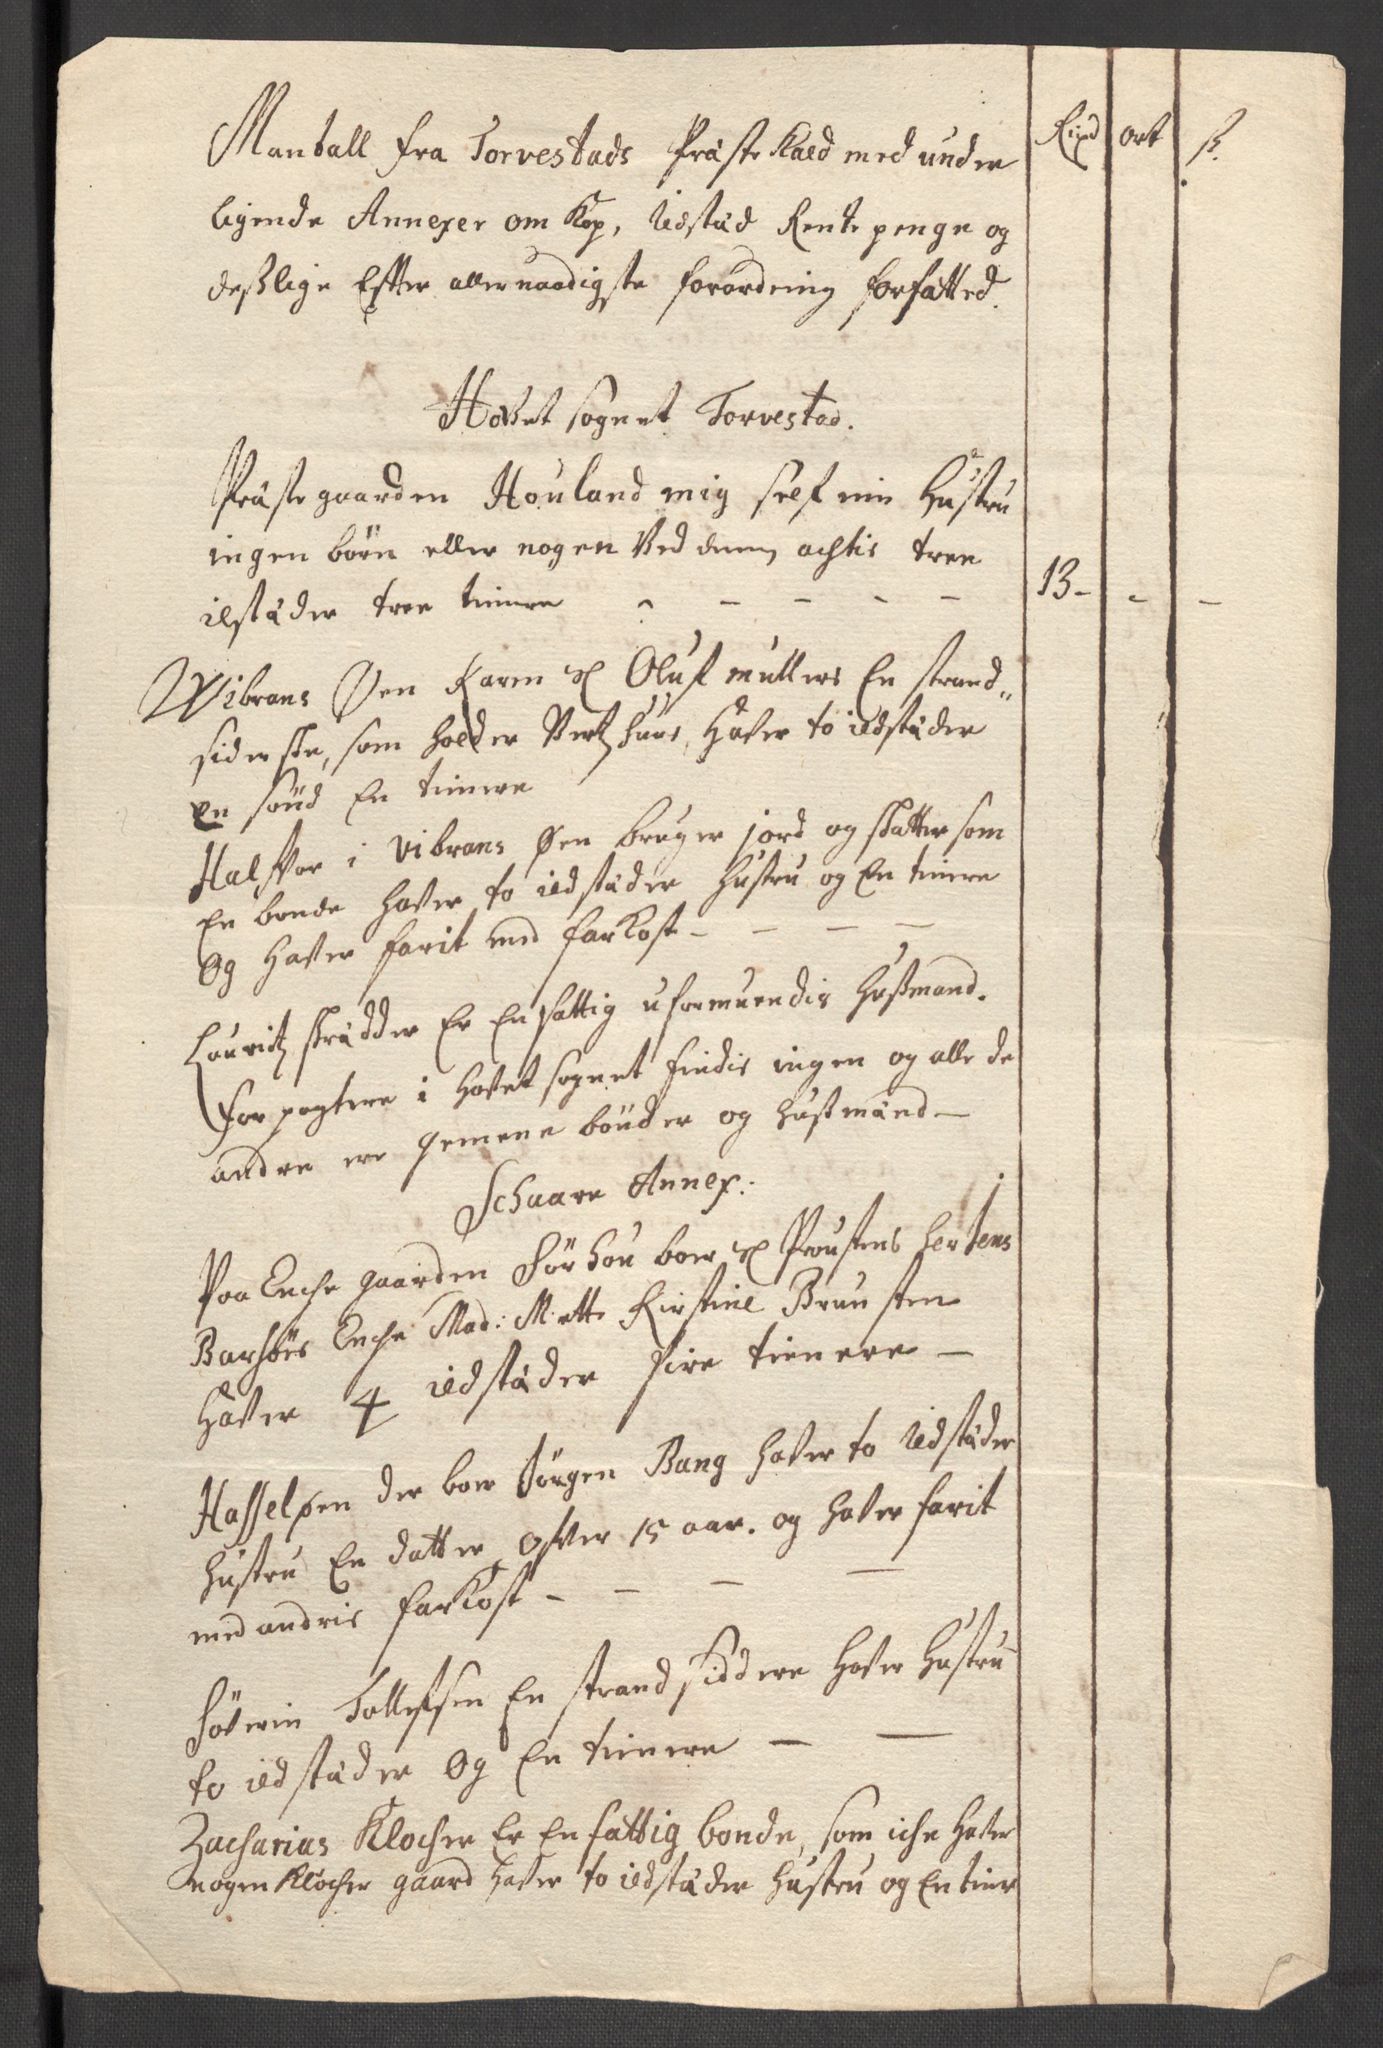 Mantall fra Torvestads Præste Kald med under Rixd ort ß.
ligende Annexer om Kop, Ildstæd Rente penge og
deßlige Efter allernaadigste forordning forfatted.
Hovet sognet Torvestad.
Præste gaarden Houland mig self min Hustru
ingen börn eller nogen Ved dennem achtis tree
ilstæder tree tiennere - - - - - 13 - - -
Wibrans Øen Karen Sl Oluf mullers En strand„
siderske, som holder Vertzhuus, Haver to ildstæder
en sönd En tiennere
Halffvor i Vibrans Øen bruger jord og skatter som
En bonde haver to ildstæder Hustru og En tienere
Og Haver farit med farkost - - - -
Louridtz skrædder Er En fattig uformuendis Hußmand.
forpagtere i Hovet sognet findis ingen og alle de
andre ere gemene bönder og hußmænd -
Schaare Annex:
Paa Enche gaarden Sörhou boer Sl Proustens her Jens
Barhörs Enche Mad: Mette Kirstine Brunsten
Haver 4 ildstæder fire tienere -
Hasseløen der boer Jörgen Bang haver to Ildstæder
Hustru En datter offver 15 aar. og haver farit
med andris farkost - - - -
Söverin Tollefsen En strandsiddere haver Hustru
to ildstæder Og En tiennere - -
Zacharias Klocher Er En fattig bonde, som iche haver
nogen Klocher gaard haver to ildstæder Hustru og En tiener